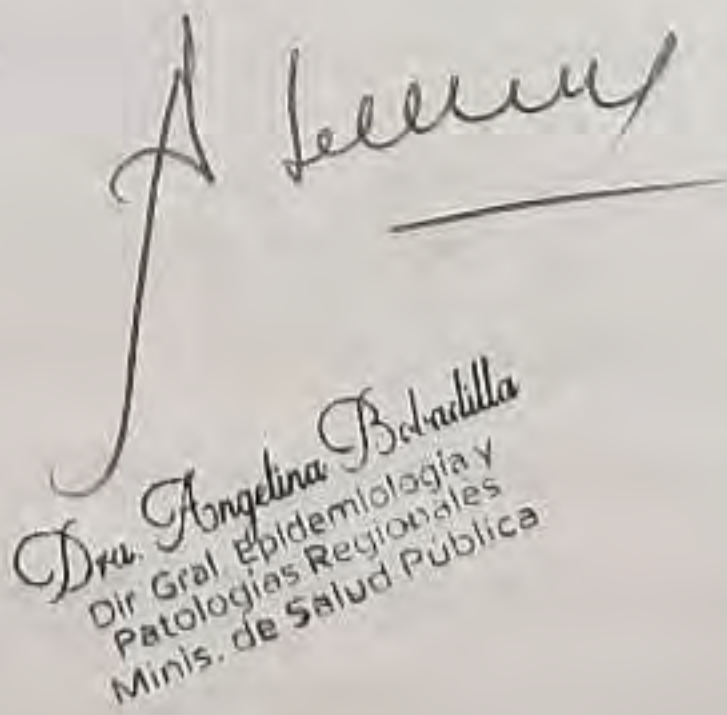 Dra. Angelina Bobadilla
Dir Gral Epidemiología y
Patologías Regionales
Minis. de Salud Pública